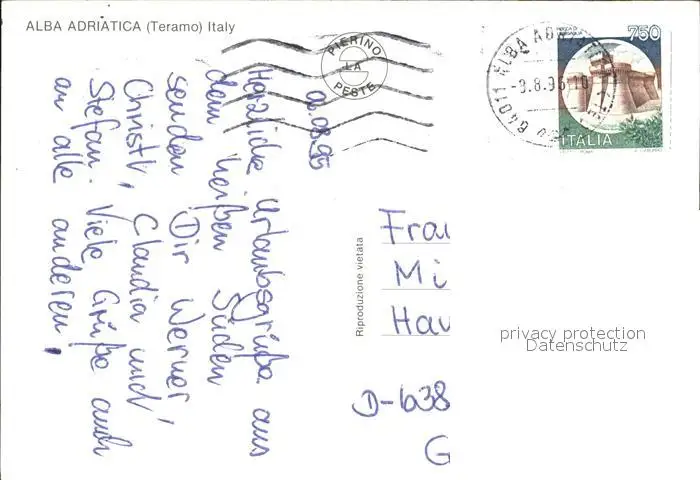 ALBA ADRIATICA (Teramo) Italy
PIERINO
LA
PESTE
64011 ALBA ADRIATICA
-3.8.95-10
750
ITALIA
02.08.95
Herzliche Urlaubsgrüße aus
dem heißen Süden
senden Dir Werner,
Christl, Claudia und
Stefan. Viele Grüße auch
an alle anderen!
Riproduzione vietata
Frau
Mi
Hau
D-638
G
privacy protection
Datenschutz